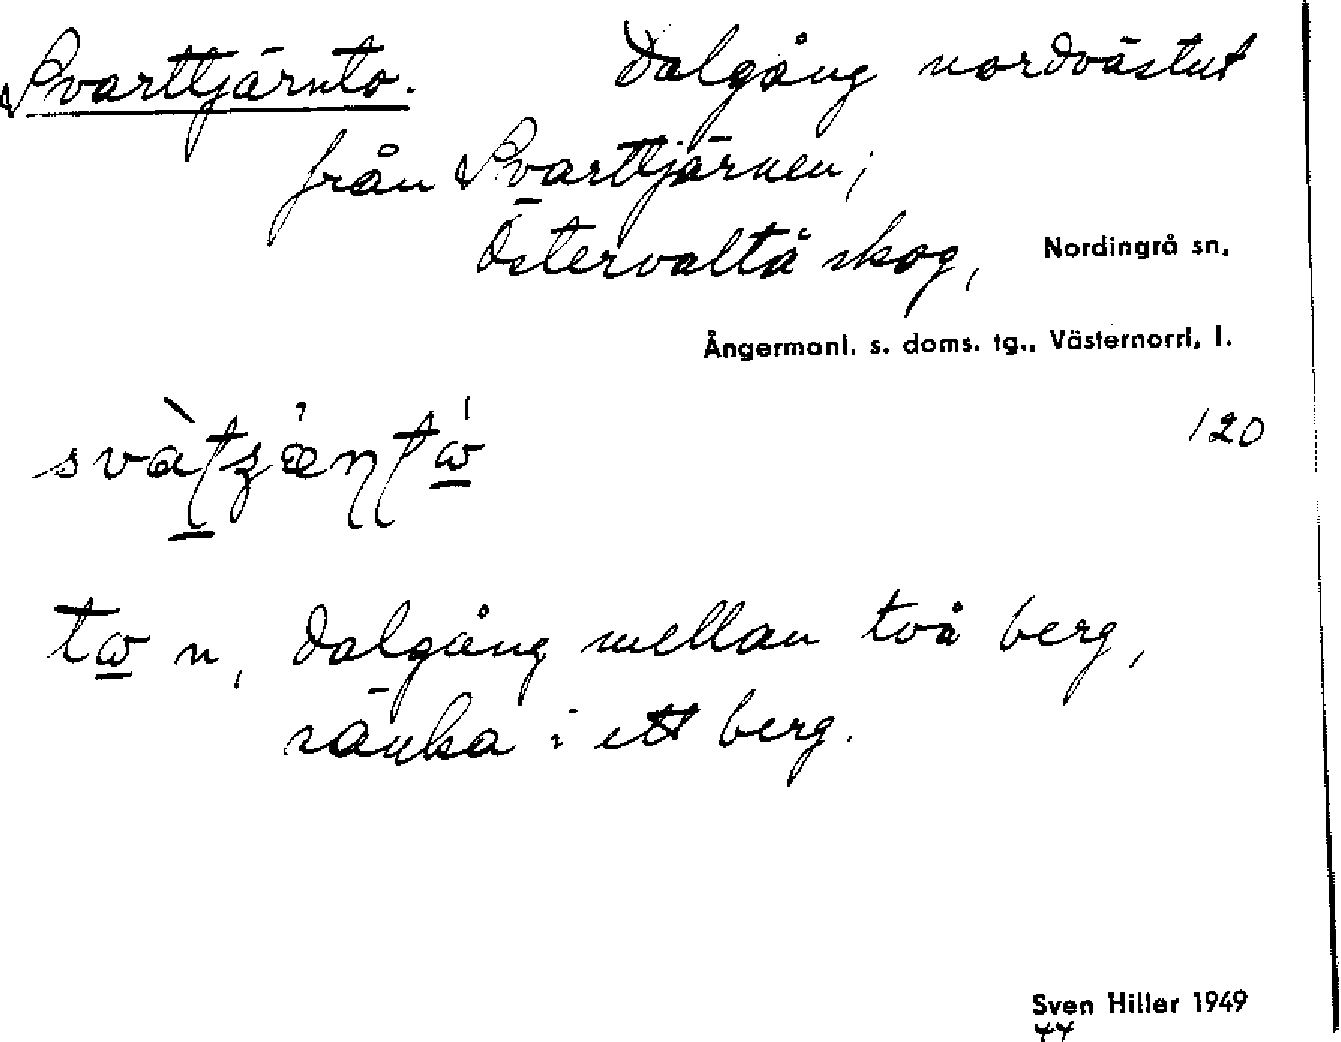 Svarttjärnto. Dalgång nordvästut
från Svarttjärnen;
Östervaltå skog, Nordingrå sn,
Ångermanl. s. doms. tg., Västernorrl. l.
120
n, dalgång mellan två berg,
sänka i ett berg.
Sven Hiller 1949
44